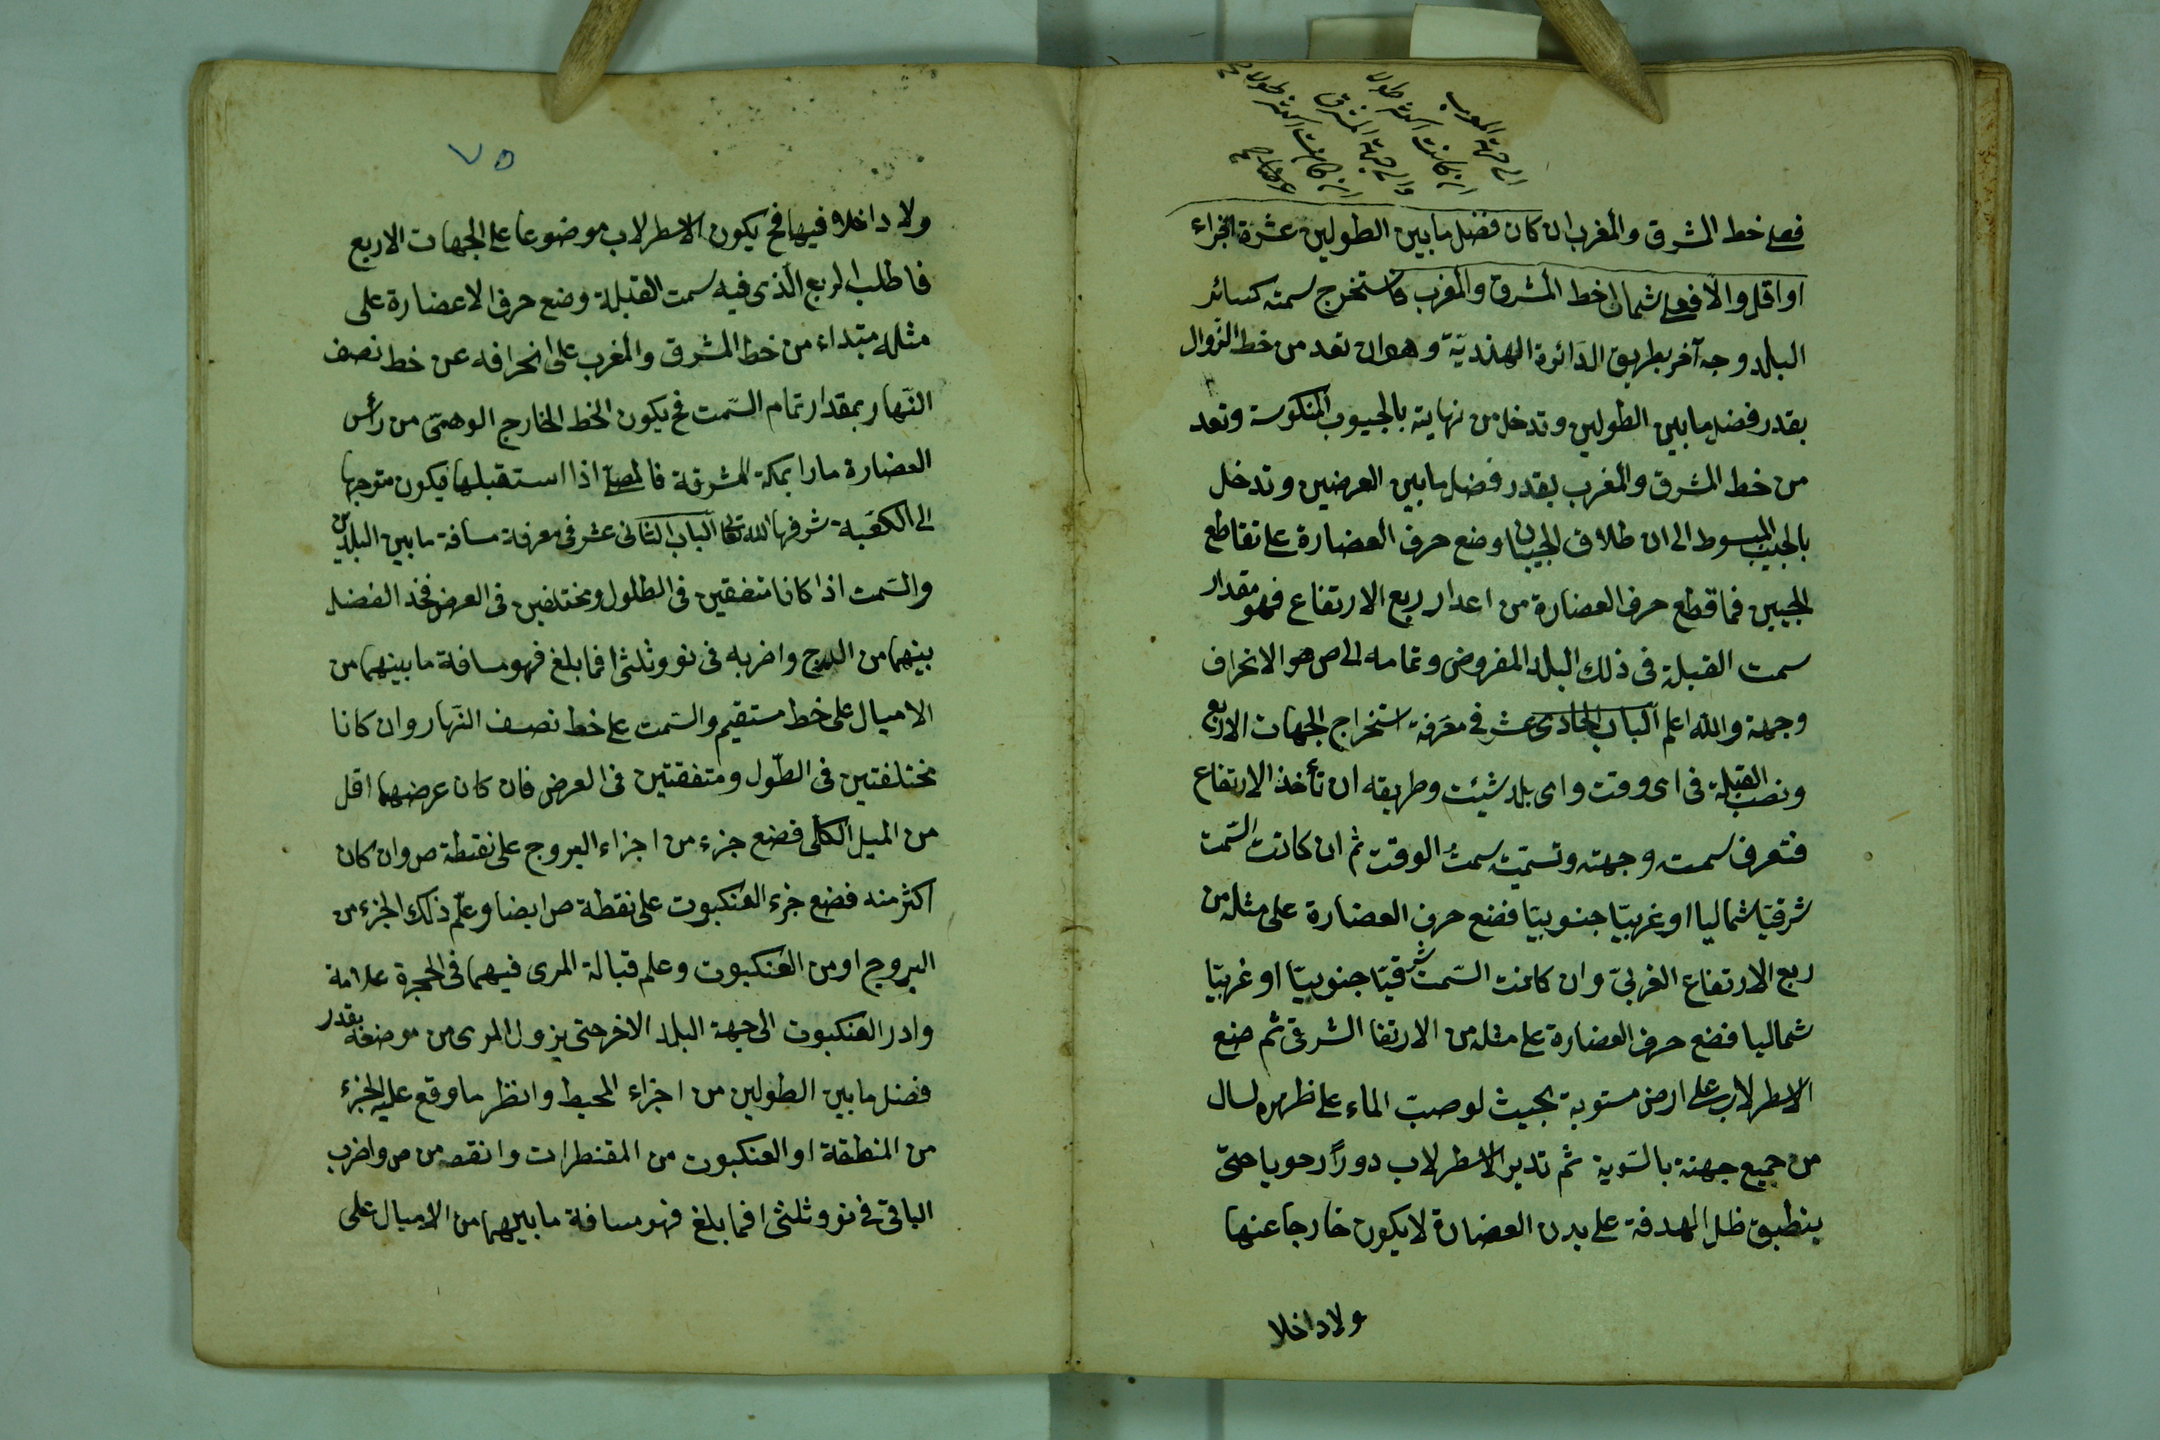 الى جهة المغرب
ان كانت اكثر طولا
والى جهة المشرق
ان كانت اكثر طولا
فعلى خط المشرق والمغرب ان كان فضل ما بين الطولين عشرة اجزاء
او اقل والا فعلى شمال خط المشرق والمغرب فاستخرج سمته كسائر
البلد وجه آخر بطريق الدائرة الهنديّة وهو ان تعد من خط الزوال
بقدر فضل ما بين الطولين وتدخل من نهايته بالجيوب المنكوسة وتعد
من خط المشرق والمغرب بقدر فضل ما بين العرضين وتدخل
بالجيب المبسوط الى ان طلاق الجيبان وضع حرف العضارة على تقاطع
الجيبين فما قطع حرف العضارة من اعداد ربع الارتفاع فهو مقدار
سمت القبلة فى ذلك البلد المفروض وتمامه الى ص هو الانحراف
وجهة والله اعلم الباب الحادى عشر فى معرفة استخراج الجهات الاربع
ونصب القبلة فى اى وقت واى بلد شيئت وطريقه ان تأخذ الارتفاع
فتعرف سمت وجهته وتسميت سمتُ الوقت ثم ان كانت السّمت
شرقيّا شماليا او غربيّا جنوبيّا فضع حرف العضارة على مثله من
ربع الارتفاع الغربىّ وان كانت السّمت شرقيّا جنوبيّا او غربيّا
شماليا فضع حرف العضارة على مثله من الارتفا الشرقى ثم ضع
الاسطرلاب على ارض مستوية بحيث لو صبّ الماء على ظهره لسال
من جميع جهته بالسّوية ثم تدير الاسطرلاب دوراً رحويا حتىّ
ينطبق ظل الهدفة على بدن العضادة لا يكون خارجا عنها
ولا داخلا
٧٥
ولا داخلا فيها فح يكون الاسطرلاب موضوعا على الجهات الاربع
فاطلب الربع الّذى فيه سمت القبلة وضع حرف الاعضارة على
مثله مبتداء من خط المشرق والمغرب على انحرافه عن خط نصف
النّهار بمقدار تمام السّمت فح يكون الخط الخارج الوهمىّ من رأس
العضارة مارا بمكة المشرفة فالمصلّى اذا استقبلها فيكون متوجها
الى الكعبة شرفها الله تعالى الباب الثانى عشر فى معرفة مسافة ما بين البلدين
والسّمت اذا كانا متفقين فى الطلول ومختلفين فى العرض فخذ الفضل
بينهما من الدرج واضربه فى نو وثلثى ا فما بلغ فهو مسافة ما بينهما من
الاميال على خط مستقيم والسّمت على خط نصف النّهار وان كانا
مختلفتين فى الطّول ومتفقتين فى العرض فان كان عرضهما اقل
من الميل الكلى فضع جزء من اجزاء البروج على نقطة ص وان كان
اكثر منه فضع جزء العنكبوت على نقطة ص ايضا وعلّم ذلك الجزء من
البروج او من العنكبوت وعلم قبالة المرى فيهما فى الحجرة علامة
وادر العنكبوت الى جهة البلد الاخر حتى يزول المرى من موضعه بقدر
فضل ما بين الطولين من اجزاء المحيط وانظر ما وقع عليه الجزء
من المنطقة او العنكبوت من المقنطرات وانقصه من ص واضرب
الباقى فى نو وثلثى ا فما بلغ فهو مسافة ما بينهما من الاميال على